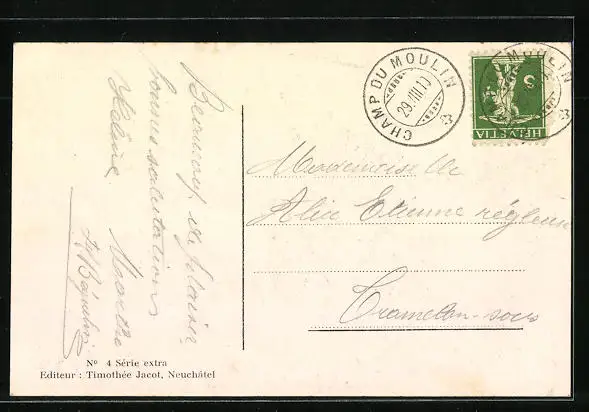 Beaucoup de plaisir
bonnes salutations
Hélène Marthe
CHAMP DU MOULIN
29.VIII.13
MOULIN
5
HELVETIA
Mademoiselle
Alice Etienne régleuse
Tramelan-sous
Nº 4 Série extra
Editeur : Timothée Jacot, Neuchâtel